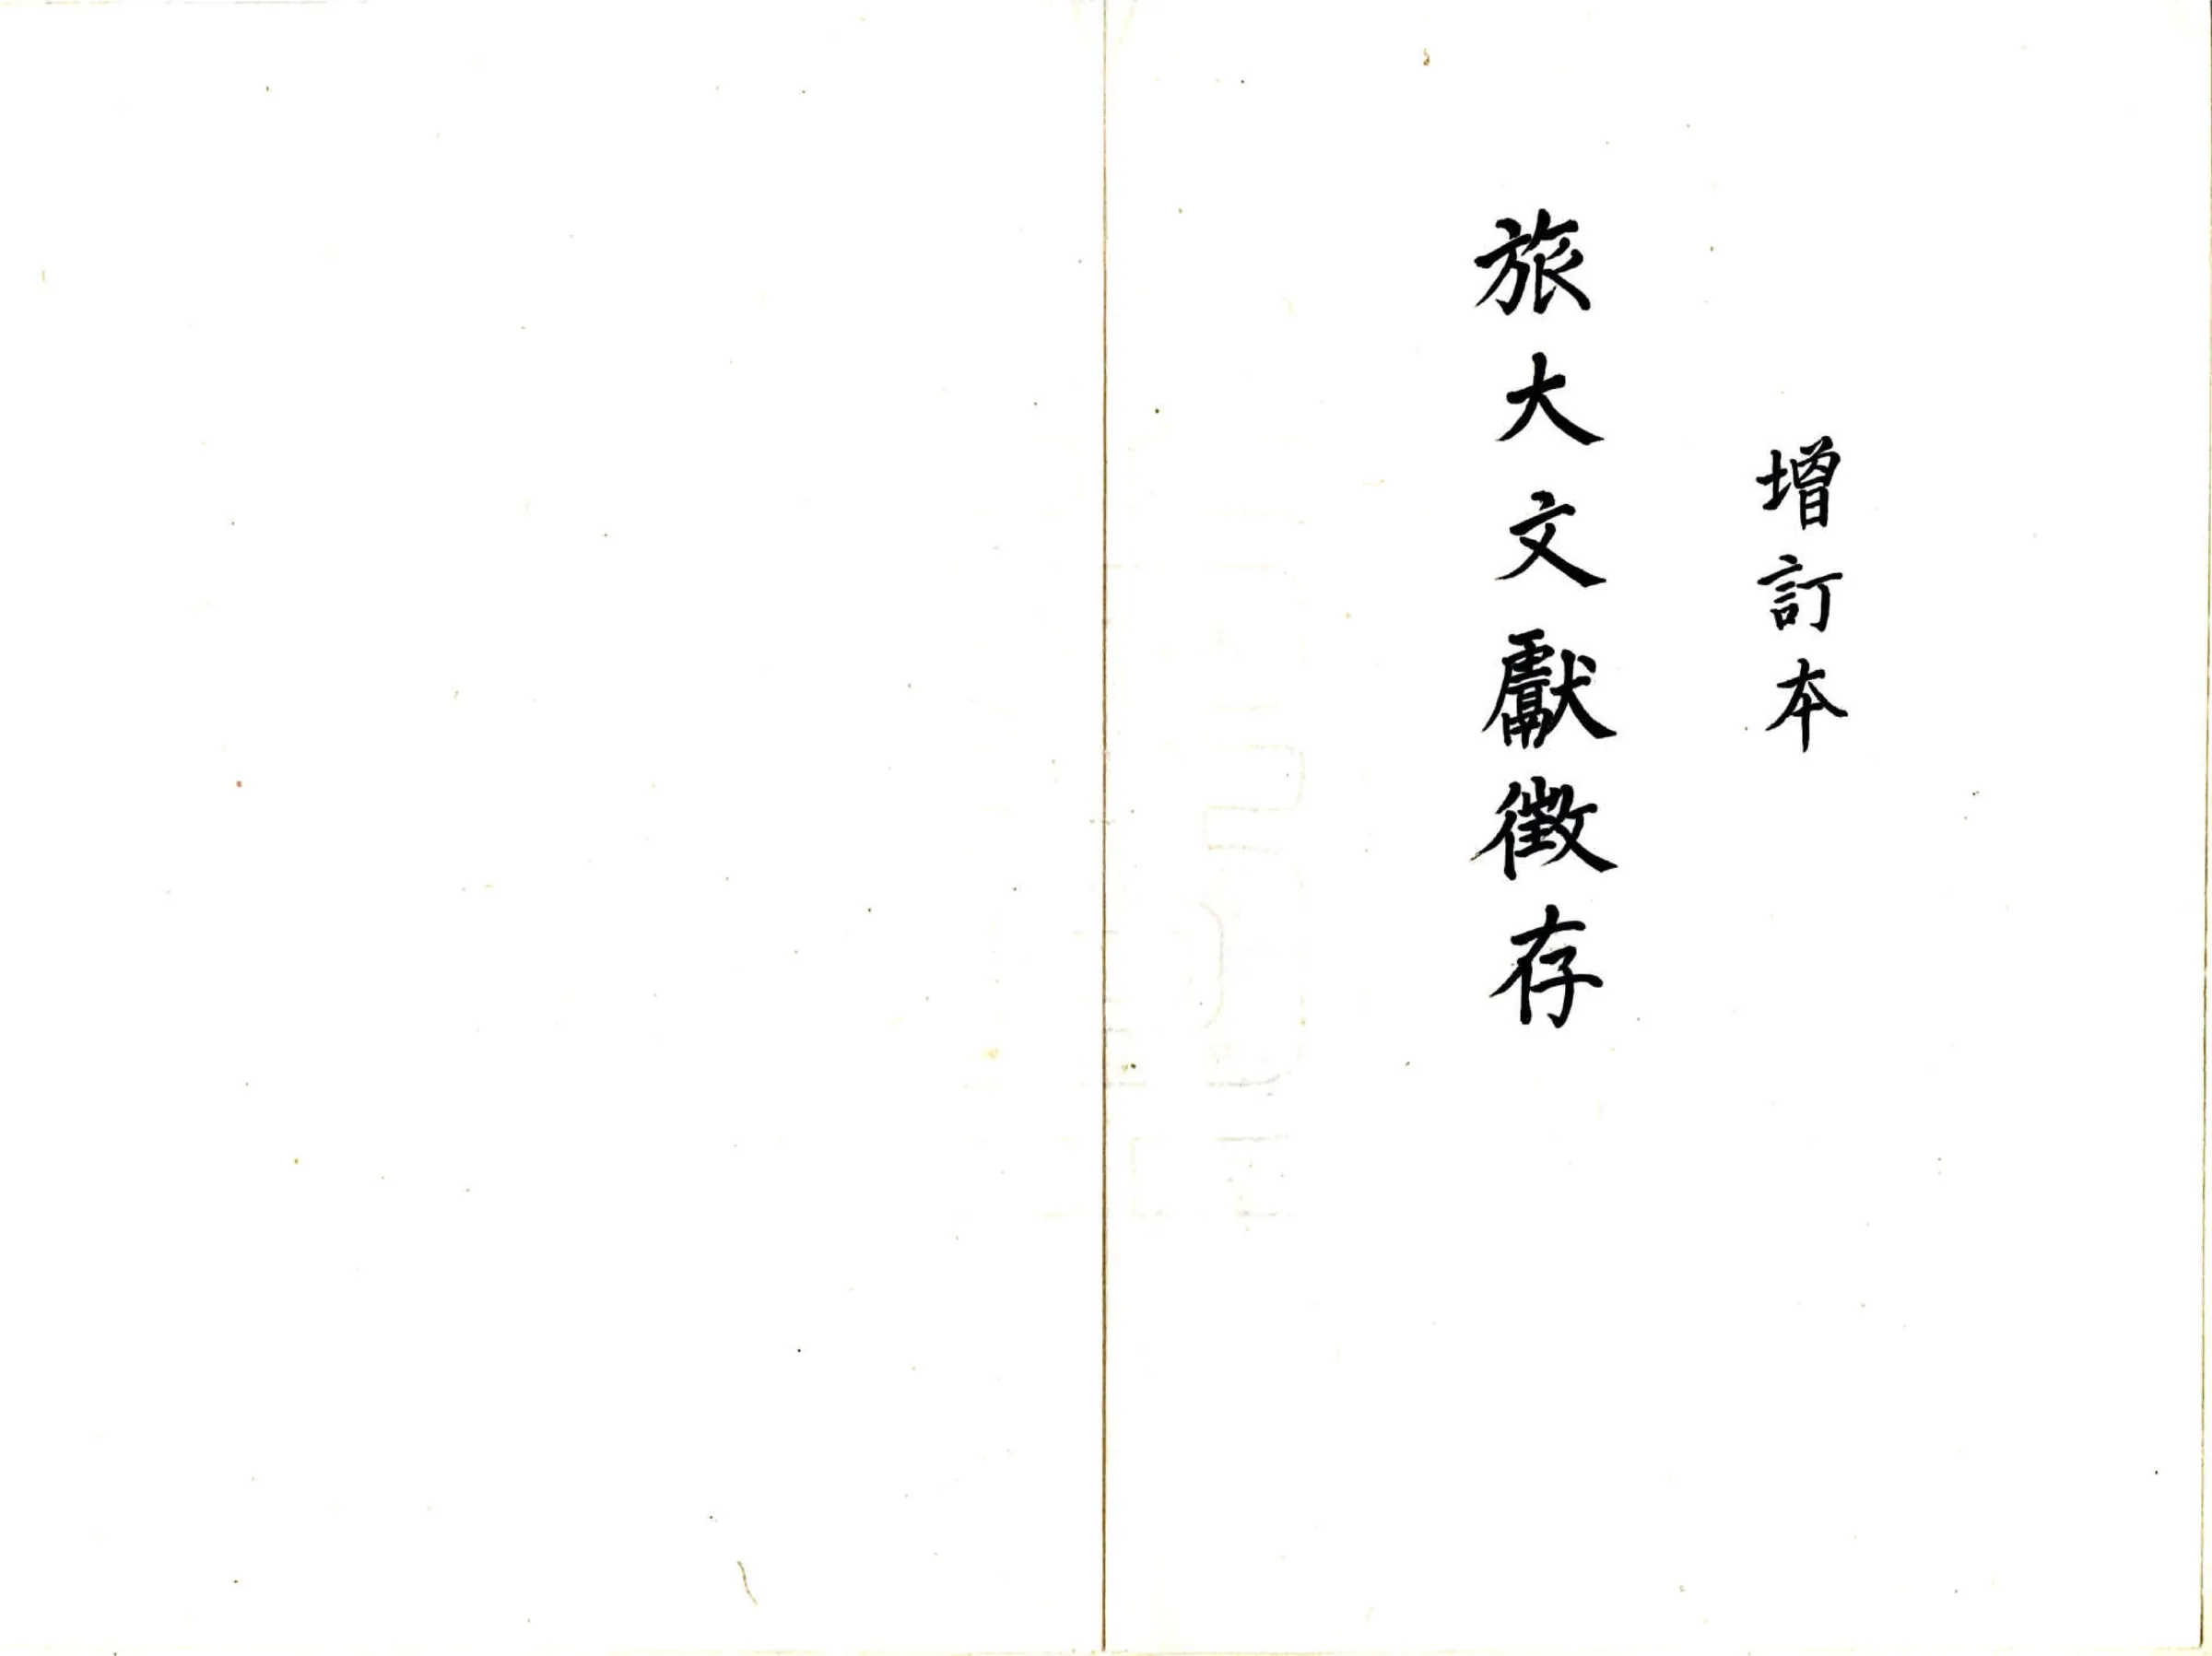 增訂本
旅大文獻徵存